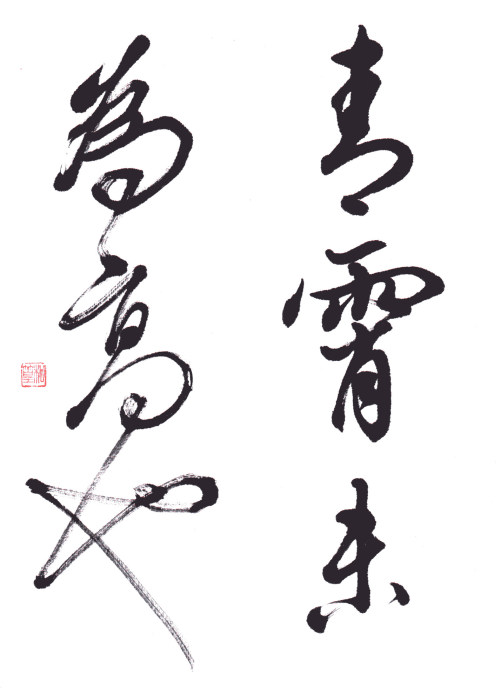 青霄未
為高也